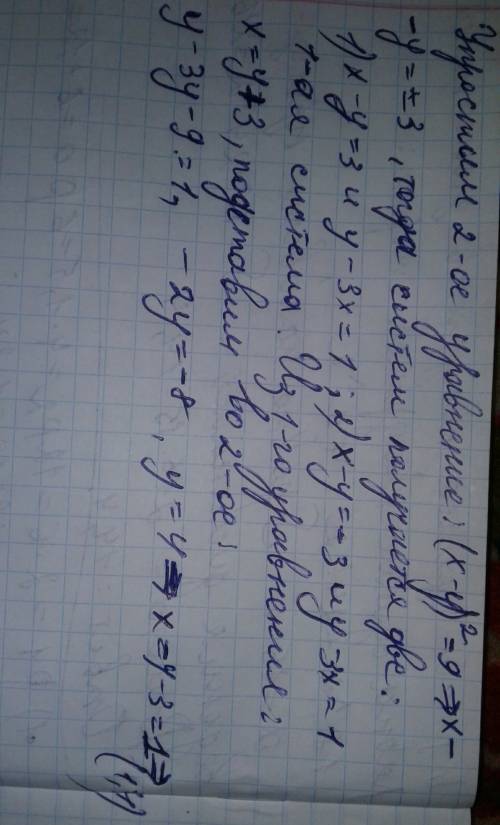 Упростим 2-ое уравнение: (x-y)²=9⇒x-
-y=±3, тогда систем получается две:
1) x-y=3 и y-3x=1; 2) x-y=-3 и y-3x=1
1-ая система: Из 1-го уравнения:
x=y+3, подставим во 2-ое:
y-3y-9=1, -2y=-8, y=4⇒x=y-3=1⇒
(1;4)